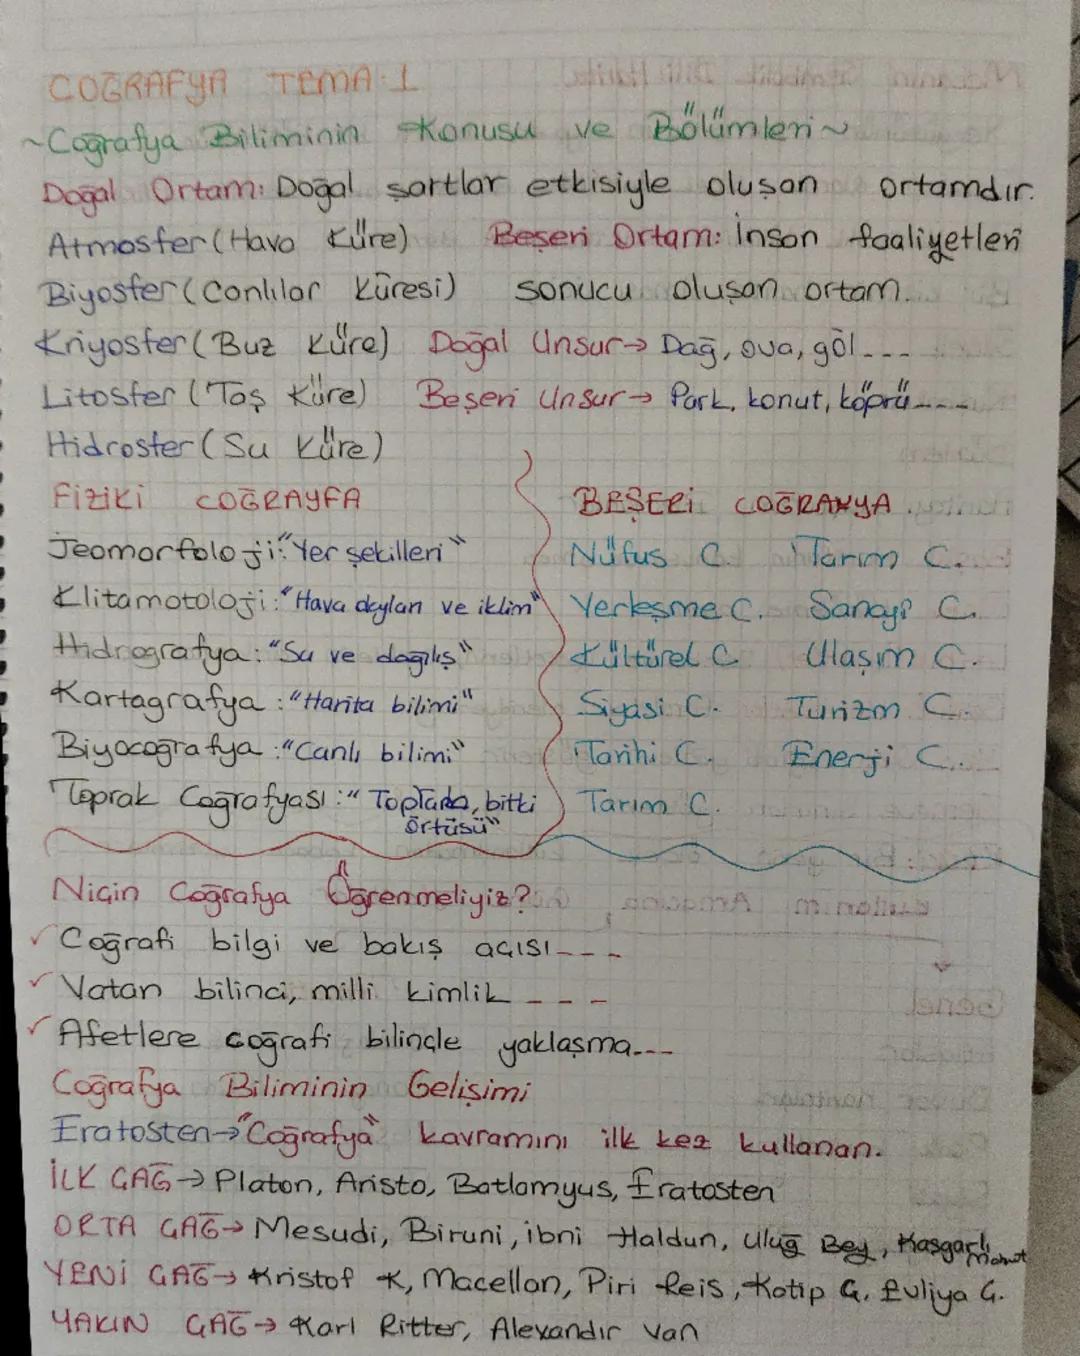 COĞRAFYA TEMA: 1
~Coğrafya Biliminin Konusu ve Bölümleri~
Doğal Ortam: Doğal şartlar etkisiyle oluşan ortamdır.
Atmosfer (Hava Küre) Beşeri Ortam: İnsan faaliyetleri
Biyosfer (Canlılar Küresi) sonucu oluşan ortam.
Kriyosfer (Buz Küre) Doğal Unsur→ Dağ, ova, göl---
Litosfer (Taş Küre) Beşeri Unsur→ Park, konut, köprü----
Hidrosfer (Su Küre)
FİZİKİ COĞRAYFA
Jeomorfoloji: "Yer şekilleri"
Klitamotoloji: "Hava olayları ve iklim"
Hidrografya: "Su ve dağılış"
Kartagrafya: "Harita bilimi"
Biyocoğrafya: "Canlı bilimi"
Toprak Coğrafyası: " bitki
örtüsü"
BEŞERİ COĞRAFYA
Nüfus C. Tarım C.
Yerleşme C. Sanayi C.
Kültürel C. Ulaşım C.
Siyasi C. Turizm C.
Tarihi C. Enerji C.
Tarım C.
Niçin Coğrafya Öğrenmeliyiz?
✓ Coğrafi bilgi ve bakış açısı---
✓ Vatan bilinci, milli kimlik ---
✓ Afetlere coğrafi bilinçle yaklaşma---
Coğrafya Biliminin Gelişimi
Eratosten→ "Coğrafya" kavramını ilk kez kullanan.
İLK ÇAĞ→ Platon, Aristo, Batlamyus, Eratosten
ORTA ÇAĞ→ Mesudi, Biruni, ibni Haldun, Uluğ Bey, Kaşgarlı Mahmut
YENİ ÇAĞ→ Kristof K, Macellan, Piri Reis, Katip Ç. Evliya Ç.
YAKIN ÇAĞ→ Karl Ritter, Alexandır Van